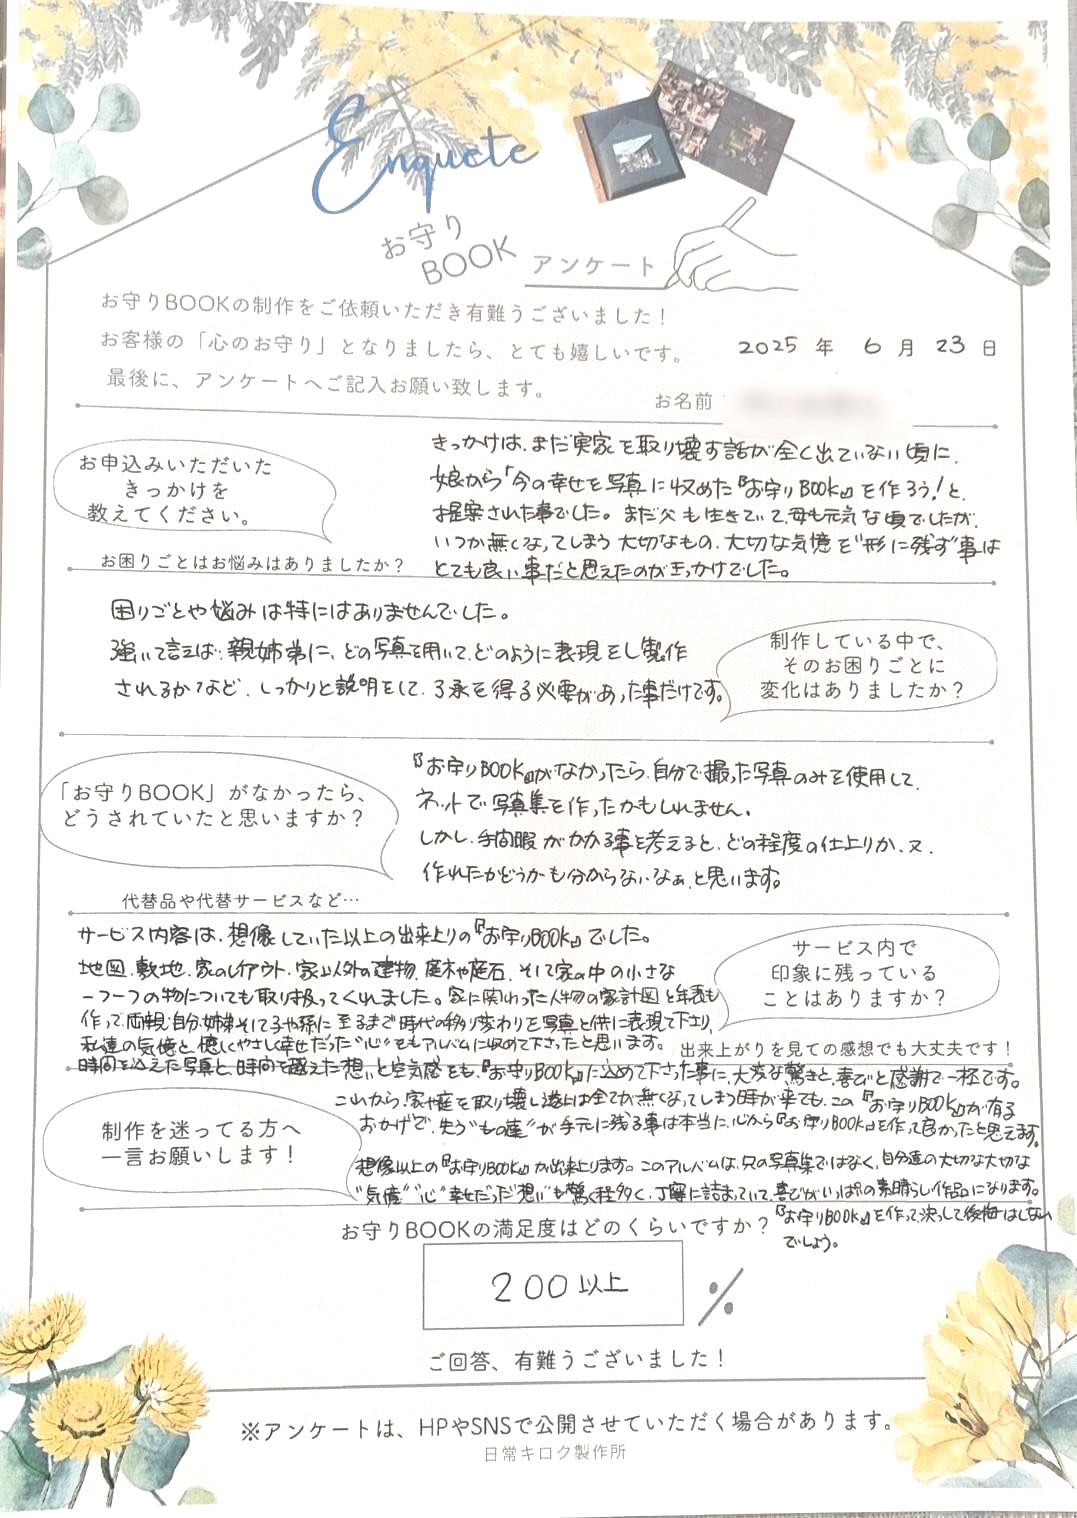 Enquete
お守り
BOOK
アンケート
お守りBOOKの制作をご依頼いただき有難うございました！
お客様の「心のお守り」となりましたら、とても嬉しいです。
2025 年 6 月 23 日
最後に、アンケートへご記入お願い致します。
お名前
お申込みいただいた
きっかけを
教えてください。
お困りごとはお悩みはありましたか？
きっかけは、まだ実家を取り壊す話が全く出ていない頃に、
娘から「今の幸せを写真に収めた『お守りBOOK』を作ろう！と、
提案された事でした。まだ父も生きていて、母も元気な頃でしたが、
いつか無くなってしまう大切なもの、大切な気憶を"形に残す"事は
とても良い事だと思えたのがきっかけでした。
制作している中で、
そのお困りごとに
変化はありましたか？
困りごとや悩みは特にはありませんでした。
強いて言えば、親姉弟に、どの写真を用いて、どのように表現をし製作
されるか？など、しっかりと説明をして、了承を得る必要があった事だけです。
「お守りBOOK」がなかったら、
どうされていたと思いますか？
代替品や代替サービスなど…
『お守りBOOK』がなかったら、自分で撮った写真のみを使用して、
ネットで写真集を作ったかもしれません。
しかし、手間暇がかかる事を考えると、どの程度の仕上りか、又、
作れたかどうかも分からないなぁ、と思います。
サービス内で
印象に残っている
ことはありますか？
出来上がりを見ての感想でも大丈夫です！
サービス内容は、想像していた以上の出来上りの『お守りBOOK』でした。
地図、敷地、家のレイアウト、家以外の建物、庭木や庭石、そして家の中の小さな
一つ一つの物についても取り扱ってくれました。家に関わった人物の家計図と年表も
作って、両親、自分、姉弟そして子や孫に至るまで時代の移り変わりを写真と供に表現して下さり、
私達の気憶と、優しくやさしく幸せだった"心"をもアルバムに収めて下さったと思います。
時間を込えた写真と、時間を越えた想いと空気感をも、『お守りBOOK』に込めて下さった事に、大変な驚きと、喜びと感謝で一杯です。
これから、家や庭を取り壊し、遂には全てが無くなってしまう時が来ても、この『お守りBOOK』が有る
おかげで、失う"もの達"が手元に残る事は本当に、心から『お守りBOOK』を作って良かったと思えます。
制作を迷ってる方へ
一言お願いします！
想像以上の『お守りBOOK』が出来上ります。このアルバムは、只の写真集ではなく、自分達の大切な大切な
"気憶""心""幸せだった想い"も驚く程多く、丁寧に詰まっていて、喜びがいっぱいの素晴らし作品になります。
『お守りBOOK』を作って、決して後悔はしない
でしょう。
お守りBOOKの満足度はどのくらいですか？
200以上 %
ご回答、有難うございました！
※アンケートは、HPやSNSで公開させていただく場合があります。
日常キロク製作所